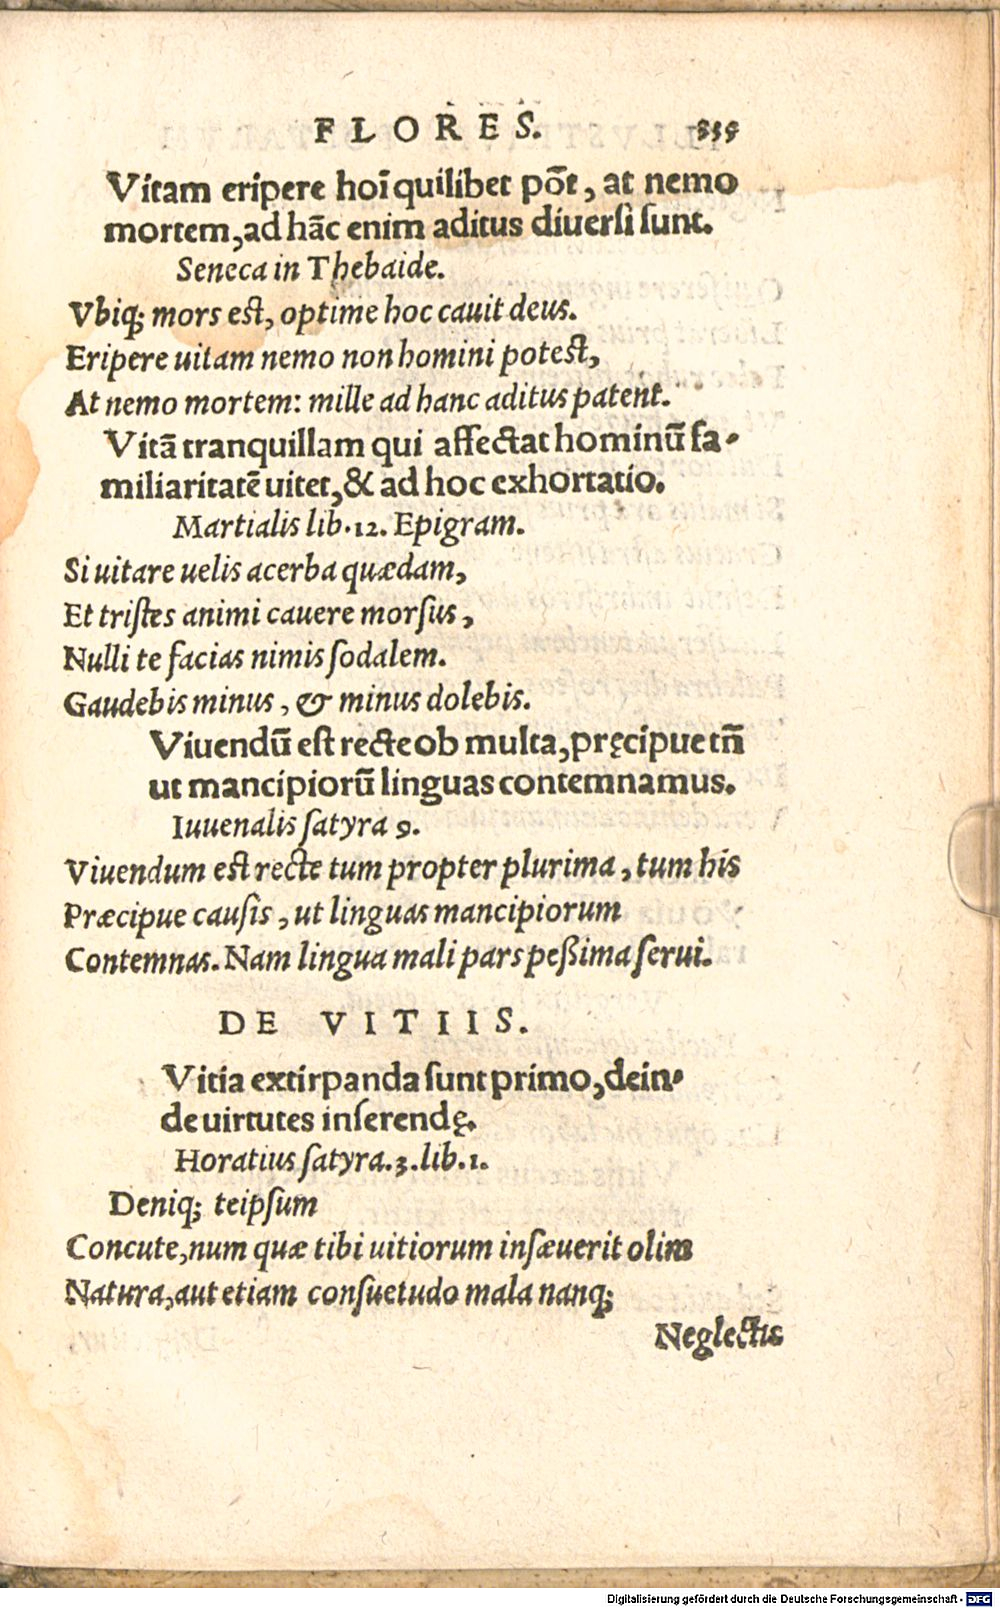 FLORES. 835
Vitam eripere hoī quilibet põt, at nemo
mortem, ad hãc enim aditus diuersi sunt.
Seneca in Thebaide.
Vbiq; mors est, optime hoc cauit deus.
Eripere uitam nemo non homini potest,
At nemo mortem: mille ad hanc aditus patent.
Vitã tranquillam qui affectat hominũ fa-
miliaritatẽ uitet, & ad hoc exhortatio.
Martialis lib. 12. Epigram.
Si uitare uelis acerba quædam,
Et tristes animi cauere morsus,
Nulli te facias nimis sodalem.
Gaudebis minus, & minus dolebis.
Viuendũ est recte ob multa, pręcipue tñ
ut mancipiorũ linguas contemnamus.
Iuuenalis satyra 9.
Viuendum est recte tum propter plurima, tum his
Præcipue causis, ut linguas mancipiorum
Contemnas. Nam lingua mali pars peßima serui.
DE VITIIS.
Vitia extirpanda sunt primo, dein-
de uirtutes inserendę.
Horatius satyra. 3. lib. 1.
Deniq; teipsum
Concute, num quæ tibi uitiorum insæuerit olim
Natura, aut etiam consuetudo mala nanq;
Neglectis
Digitalisierung gefördert durch die Deutsche Forschungsgemeinschaft - DFG